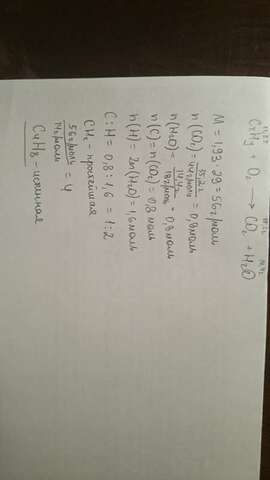 35,2г 14,4г
CxHy + O₂ → CO₂ + H₂O
M = 1,93 · 29 = 56 г/моль
n(CO₂) = 35,2г / 44 г/моль = 0,8 моль
n(H₂O) = 14,4г / 18 г/моль = 0,8 моль
n(C) = n(CO₂) = 0,8 моль
n(H) = 2n(H₂O) = 1,6 моль
C : H = 0,8 : 1,6 = 1 : 2
CH₂ - простейшая
56 г/моль / 14 г/моль = 4
C₄H₈ - истинная